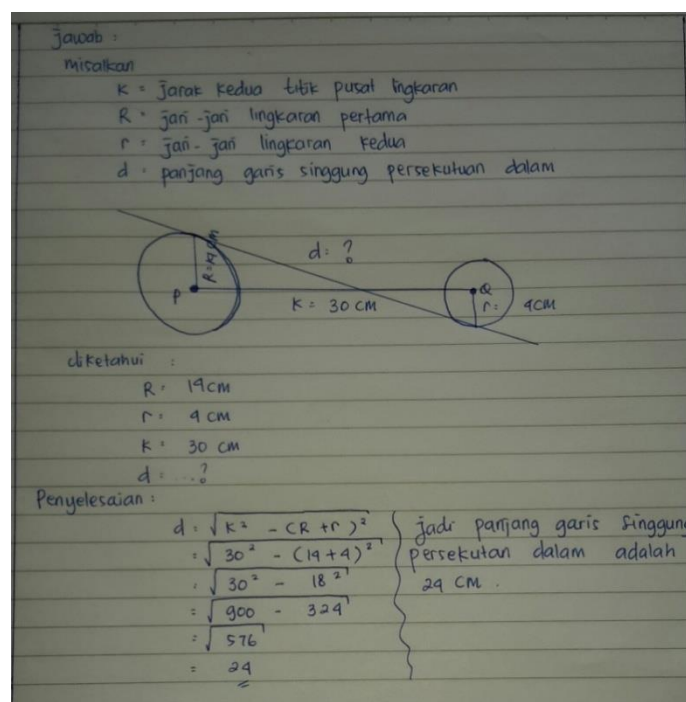 Jawab :
misalkan
K = Jarak kedua titik pusat lingkaran
R = jari-jari lingkaran pertama
r = jari-jari lingkaran kedua
d = panjang garis singgung persekutuan dalam
d = ?
R = 14 cm
P
Q
K = 30 cm
r = 4 cm
diketahui :
R = 14 cm
r = 4 cm
K = 30 cm
d = ...?
Penyelesaian :
d = √K² - (R + r)²
= √30² - (14+4)²
= √30² - 18²
= √900 - 324
= √576
= 24
jadi panjang garis singgung
persekutan dalam adalah
24 cm.